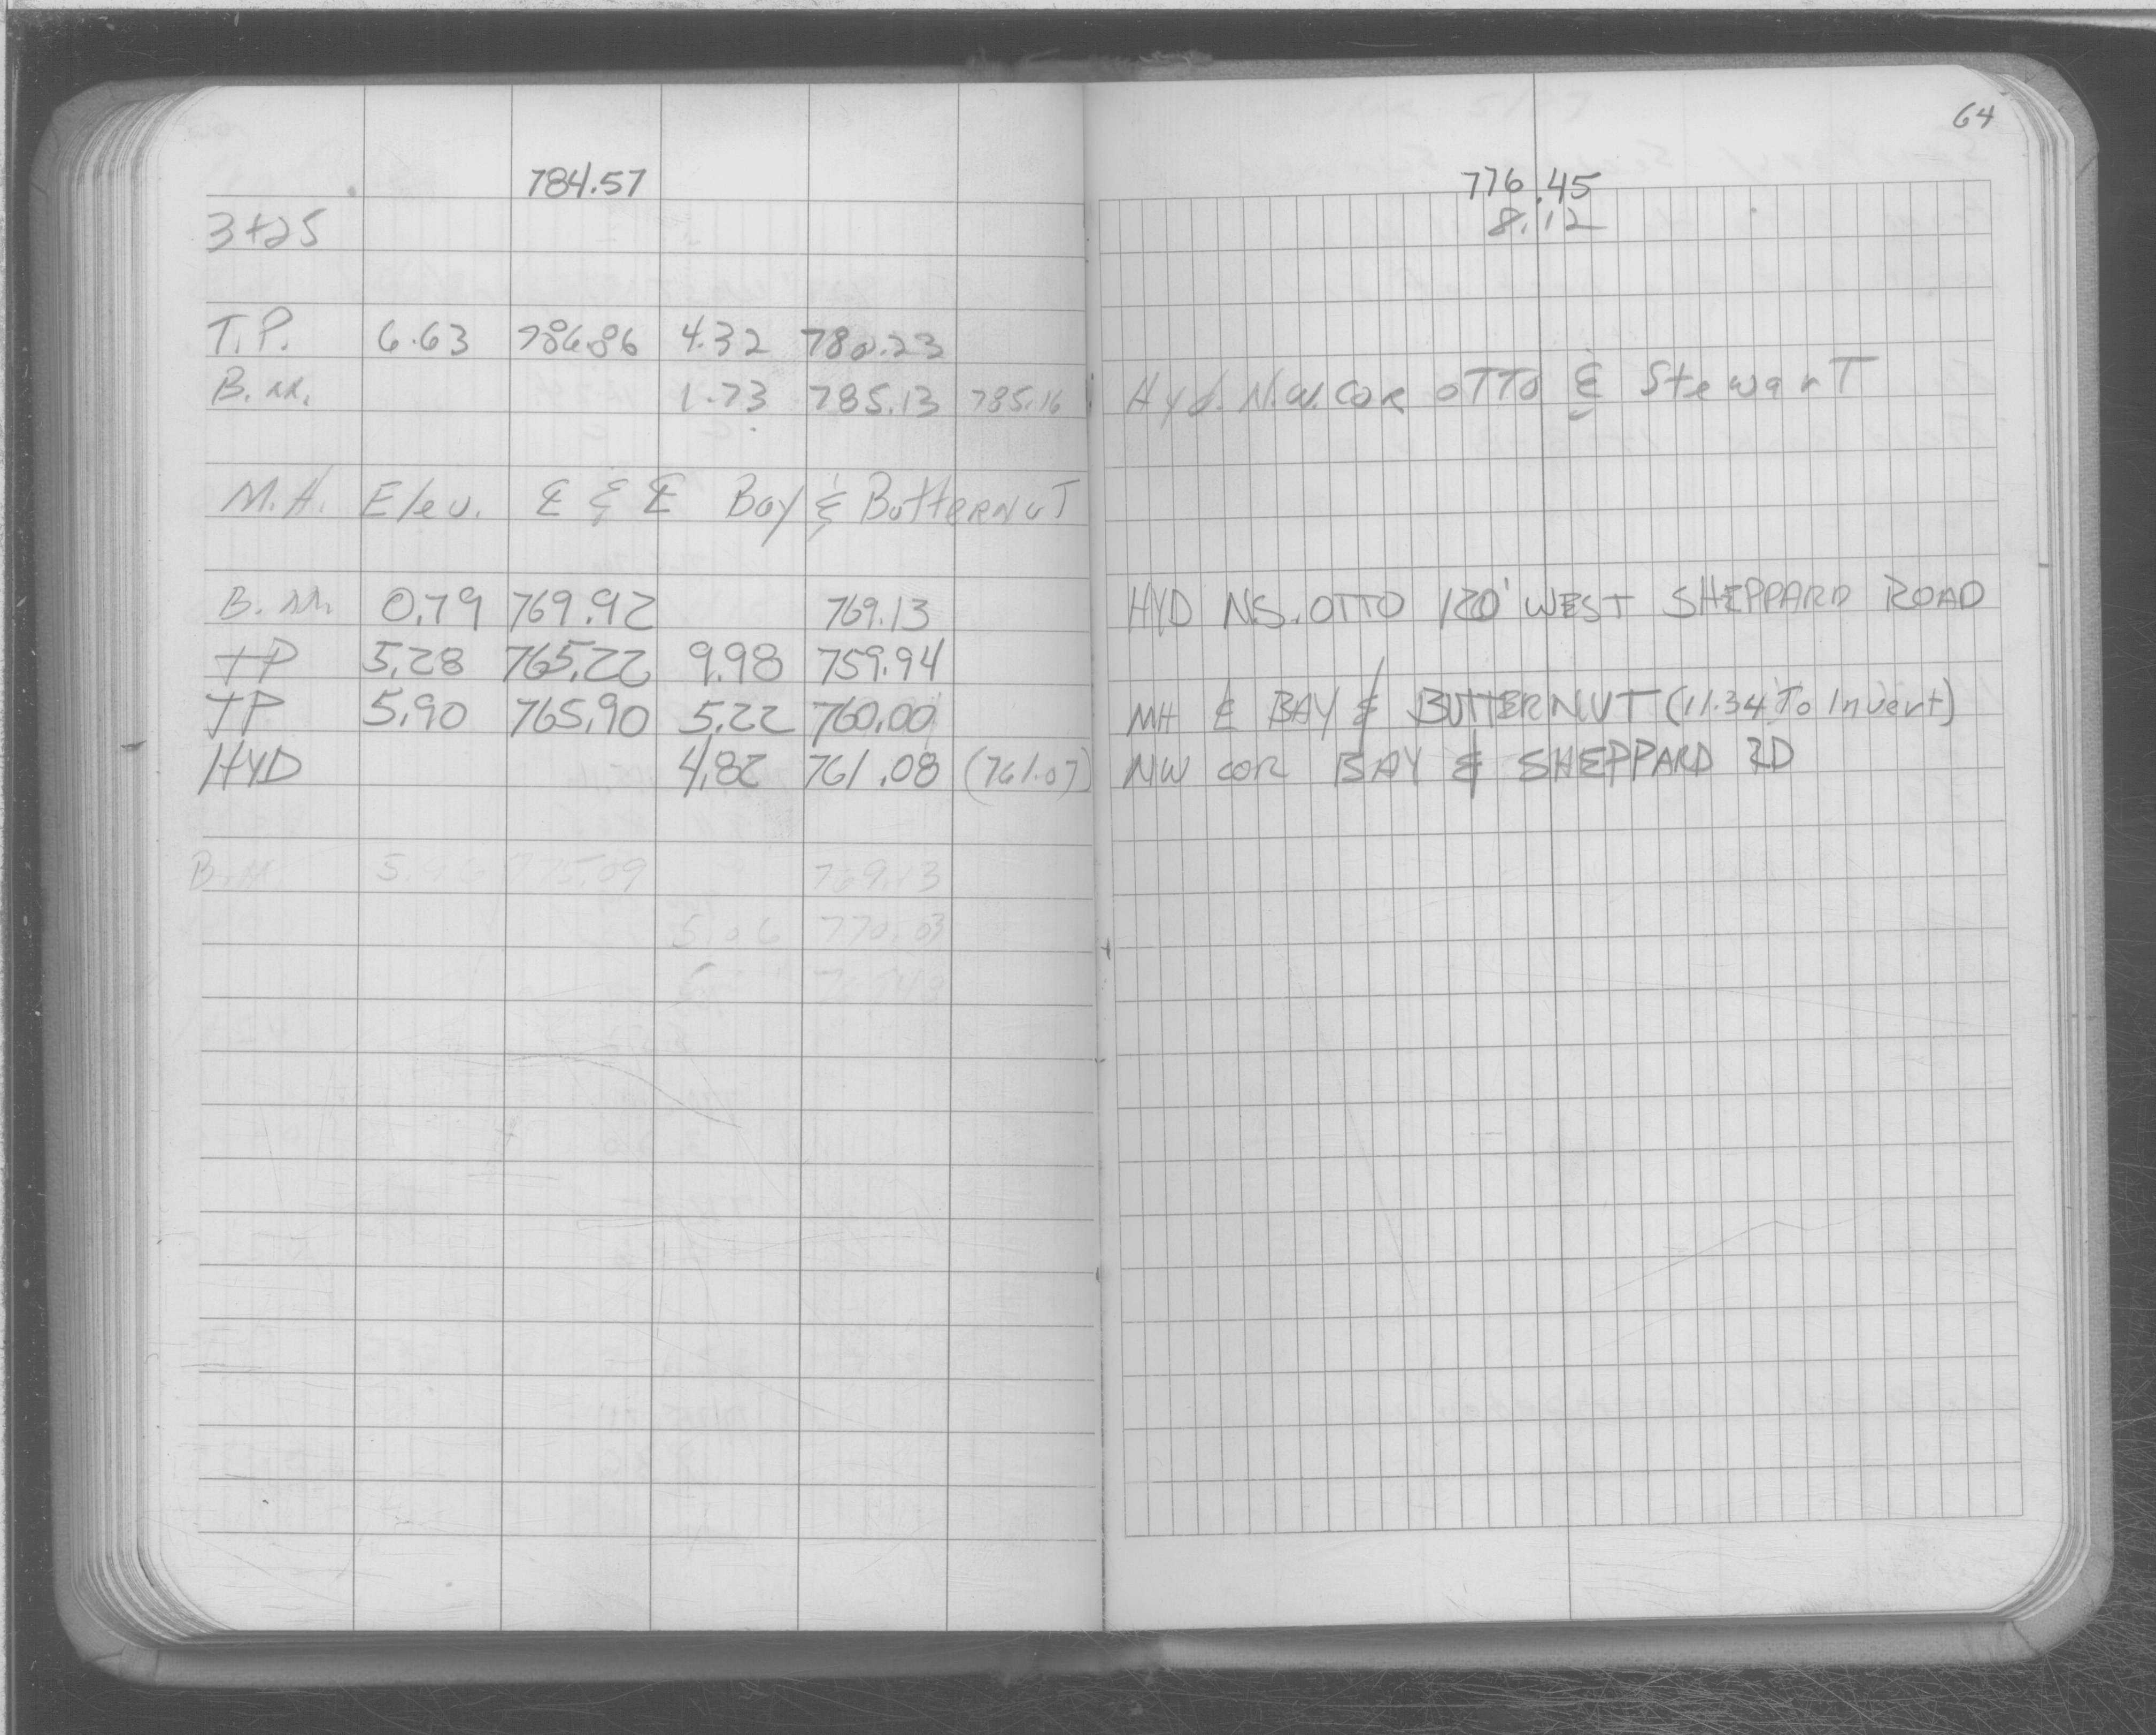 64
784.57 776.45
3+25 8.12
T.P. 6.63 786.86 4.32 780.23
B.M. 1.73 785.13 785.16 Hyd. N.W. COR OTTO & StewarT
M.H. Elev. ℄ & ℄ Bay & ButterNuT
B.M. 0.79 769.92 769.13 HYD N.S. OTTO 120' WEST SHEPPARD ROAD
TP 5.28 765.22 9.98 759.94
TP 5.90 765.90 5.22 760.00 MH ℄ BAY & BUTTERNUT (11.34 To Invert)
HYD 4.82 761.08 (761.07) NW COR BAY & SHEPPARD RD
B.M. 5.96 775.09 769.13
5.06 770.03